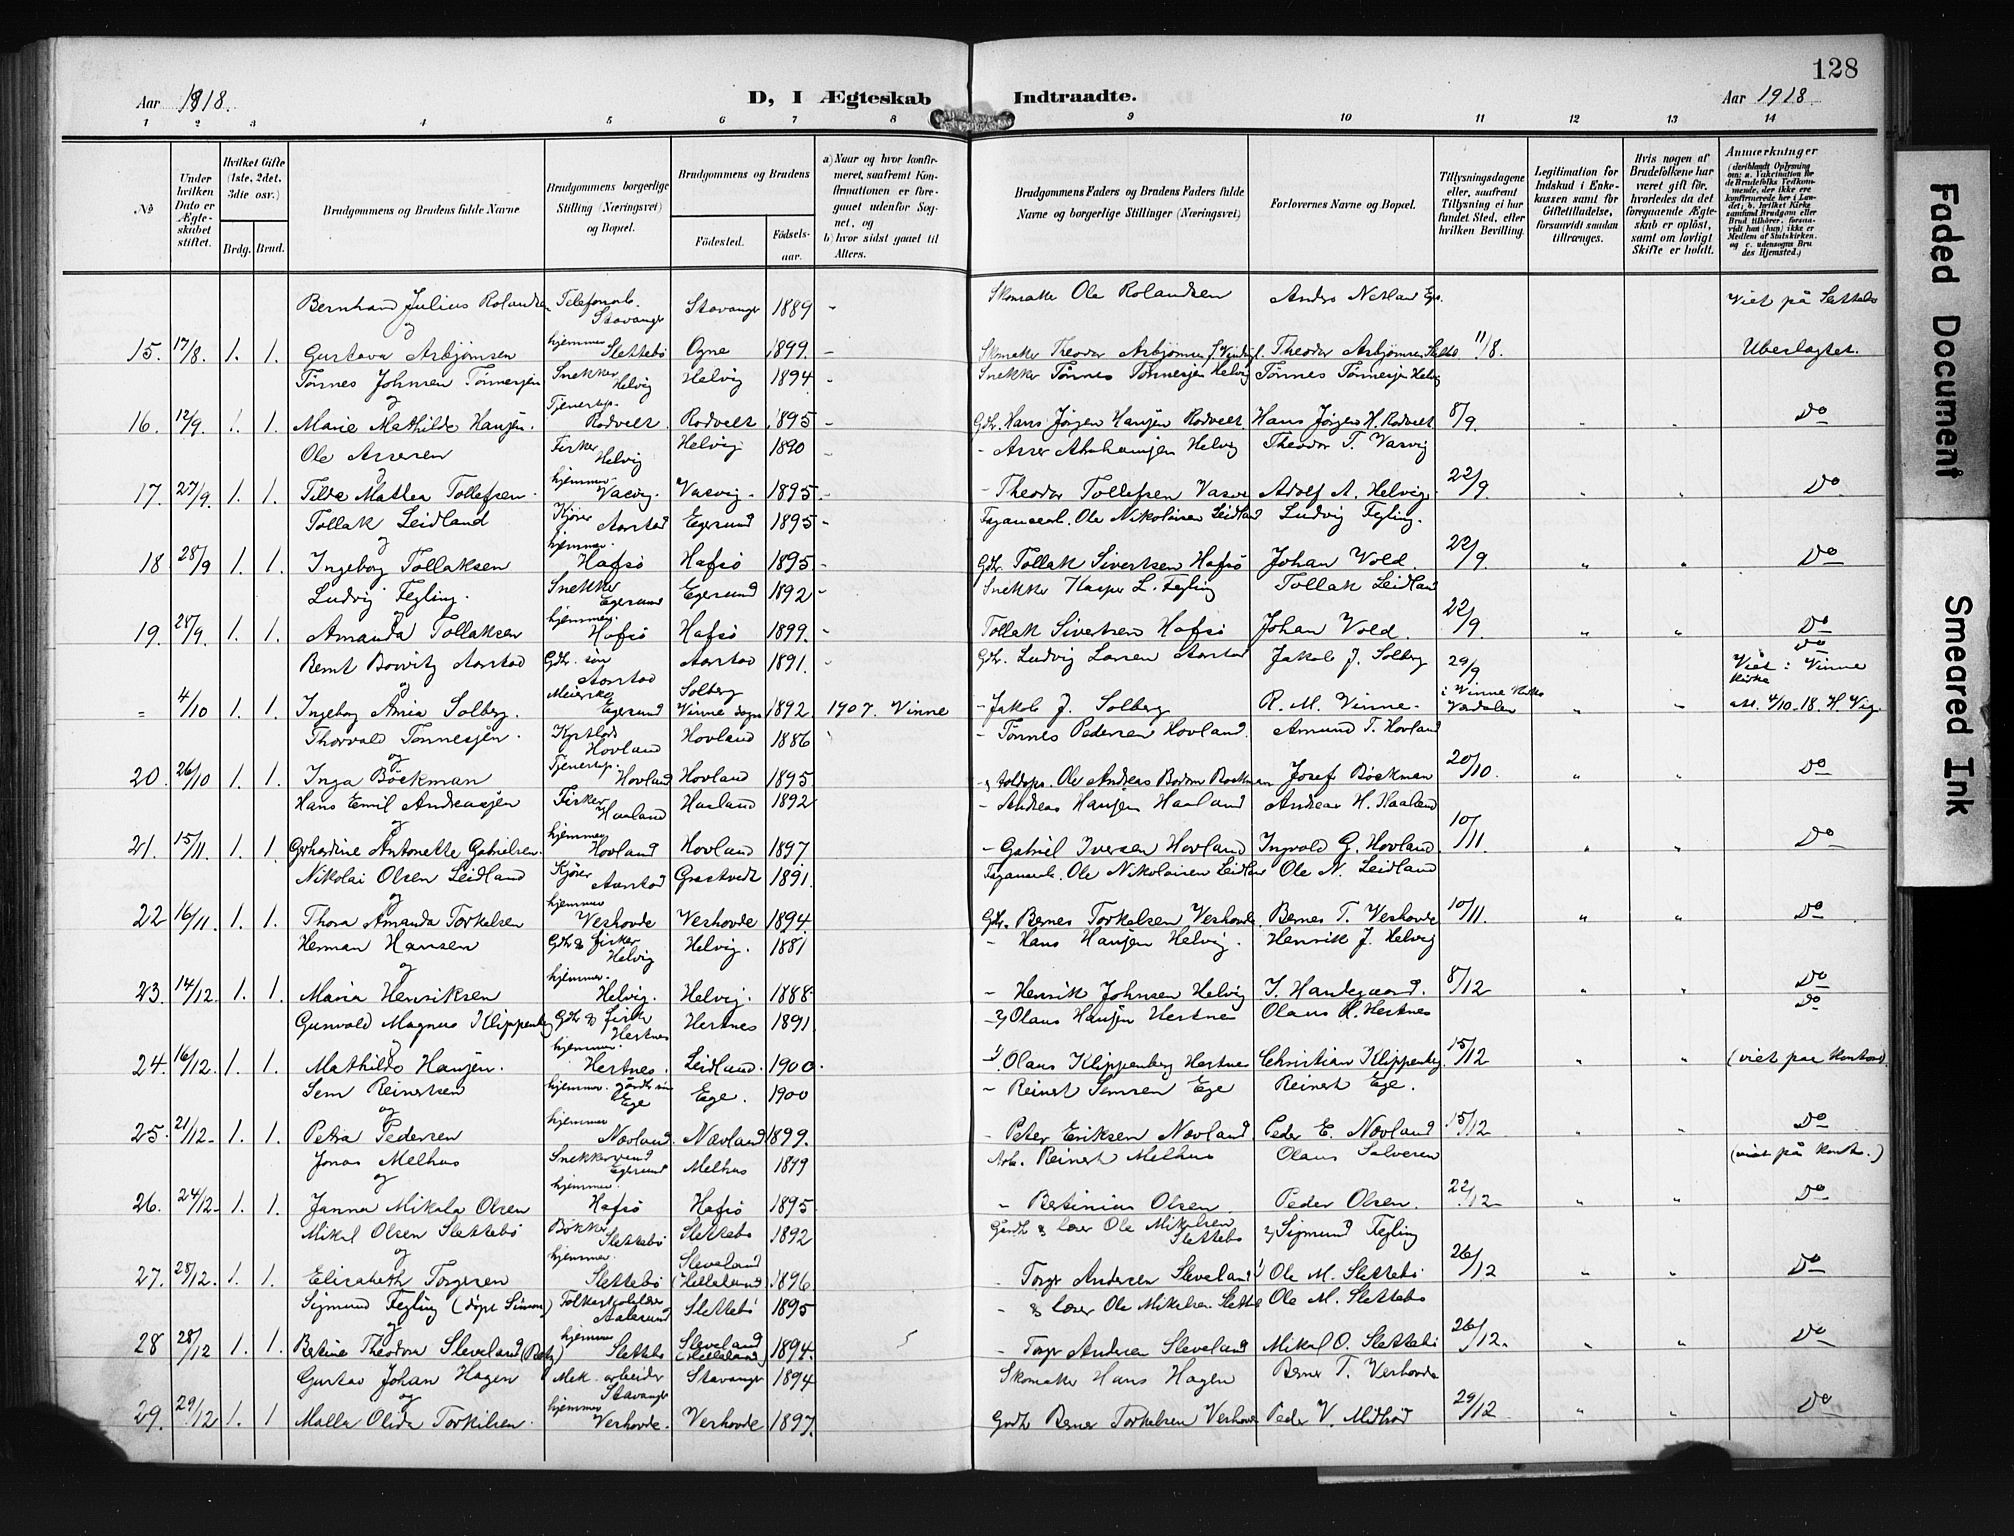 128
Aar 1918.
D, I Ægteskab Indtraadte.
Aar 1918.
1 2 3 4 5 6 7 8 9 10 11 12 13 14
No
Under hvilken Dato er Ægteskabet stiftet.
Hvilket Gifte (1ste, 2det, 3dte osv.)
Brdg. Brud.
Brudgommens og Brudens fulde Navne
Brudgommens borgerlige Stilling (Næringsvei) og Bopæl.
Brudgommens og Brudens
Fødested.
Fødselsaar.
a) Naar og hvor konfirmeret, saafremt Konfirmationen er foregaaet udenfor Sognet, og
b) hvor sidst gaaet til Alters.
Brudgommens Faders og Brudens Faders fulde Navne og borgerlige Stillinger (Næringsvei)
Forlovernes Navne og Bopæl.
Tillysningsdagene eller, saafremt Tillysning ei har fundet Sted, efter hvilken Bevilling.
Legitimation for Indskud i Enkekassen samt for Giftetilladelse, forsaavidt saadan tiltrænges.
Hvis nogen af Brudefolkene har været gift før, hvorledes da det foregaaende Ægteskab er opløst, samt om lovligt Skifte er holdt.
Anmerkninger
(deriblandt Oplysning om: a. Vakcination for de Brudefolks Vedkommende, der ikke ere konfirmerede her i Landet; b. hvilket Kirkesamfund Brudgom eller Brud tilhører, forsaavidt han (hun) ikke er Medlem af Statskirken. og c. udensogns Brudes Hjemsted.)
Bernhard Julius Rolandsen Telefonarb. Stavanger Stavanger 1889 - Skomaker Ole Rolandsen Viet på Slettebø
og
15. 17/8. 1. 1. Gustava Asbjørnsen hjemmev. Slettebø Ogne 1899. - Skomaker Theodor Asbjørnsen Theodor Asbjørnsen Slettebø 11/8. Ubeslagtet.
Tønnes Johnsen Tønnesjen Snekker Helvig Helvig 1894 - Snekker Tønnes Tønnesjen Helvig Tønnes Tønnesjen Helvig
og
16. 12/9. 1. 1. Marie Mathilde Hansjen. Tjenestep. Rodvelt. Rodvelt 1895 - Gdbr. Hans Jørgen Hansjen Rodvelt Hans Jørgen H. Rodvelt 8/9. " " Do
Ole Assersen Fisker Helvig Helvig 1890 - - Asser Abrahamsjen Helvig Theodor T. Vasvig
og
17. 27/9. 1. 1. Tilde Mathea Tollefsen. hjemmev. Vasvig. Vasvig. 1895. - - Theodor Tollefsen Vasvig Adolf A. Helvig 22/9. " " Do
Tollak Leidland Kjører Aarstad Egersund 1895 - Fajansearb. Ole Nikolaisen Leidland Ludvig Fegling.
og
18. 28/9 1. 1. Ingeborg Tollaksen hjemmev. Hafsø Hafsø 1895. - Gdbr. Tollak Sivertsen Hafsø Johan Vold. 22/9. " " Do
Ludvig Fegling. Snekker Egersund Egersund 1892 - Snekker Kasper L. Fegling Tollak Leidland
og
19. 28/9. 1. 1. Amanda Tollaksen hjemmev. Hafsø Hafsø 1899. - Tollak Sivertsen Hafsø Johan Vold. 22/9. " " Do
Bernt Bowitz Aarstad Gdbr. søn Aarstad Aarstad 1891. - Gdbr. Ludvig Larsen Aarstad Jakob J. Solberg 29/9 Do Viet i Vinne kirke
og
= 4/10 1. 1. Ingeborg Anna Solberg. Meierske Egersund Solberg Vinne sogn 1892. 1907. Vinne - Jakob J. Solberg R. M. Vinne. i Vinne Kirke Værdalen " " att. 4/10-18. H. Vig.
Thorvald Tønnesjen. Hovland Hovland 1886 - Tønnes Pedersen Hovland. Amund T. Hovland
og
20. 26/10 1. 1. Inga Bøckman Tjenestep. Hovland Hovland 1895 Ole Andreas Bockman Josef Bøckman 20/10. " " Do
Hans Emil Andreasjen Fisker Haaland Haaland 1892 - Andreas Hansjen Haaland Andreas H. Haaland
og
21. 15/11. 1. 1. Gerhardine Antonette Gabrielsen. hjemmev. Hovland Hovland 1897 - Gabriel Iversen Hovland Ingvald G. Hovland. 10/11. " " Do
Nikolai Olsen Leidland Kjører Aarstad Grøstvedt 1891. Fajansearb. Ole Nikolaisen Leidland Ole N. Leidland
og
22 16/11. 1. 1. Thora Amanda Torkelsen hjemmev Veshovde Veshovde 1894. Gdbr. Bernes Torkelsen Veshovde Bernes T. Veshovde 10/11. " " Do
Herman Hansen Gdbr. & fisker Helvig Helvig. 1881 - Hans Hansjen Helvig. Henrik J. Helvig
og
23. 14/12. 1. 1. Maria Henriksen hjemmev. Helvig. Helvig. 1888. - Henrik Johnsen Helvig I. Handegaard. 8/12 " " Do
Gunvald Magnus Klippenberg Gdbr & fisker Hestnes Hestnes 1891. 2) Olaus Hansjen Hestnes Olaus H. Hestnes Do
og
24. 16/12. 1. 1. Mathilde Hansjen. hjemmev. Hestnes. Leidland. 1900. 1) Olaus Klippenberg Hestnes Christian Klippenberg. 15/12 " " (viet paa kontoret)
Sem Reinertsen hjemmev. gårdbr. søn Ege Ege. 1900 - Reinert Semsen Ege Reinert Ege.
og
25. 21/12. 1. 1. Petra Pedersen hjemmev Nævland. Nævland 1899. - Peter Eriksen Nævland Peder E. Nævland 15/12 " " Do
Jonas Melhus Snekkersvend Egersund Melhus 1899 Arb. Reinert Melhus Olaus Salvesen (viet på kontor.)
og
26. 24/12. 1. 1. Janna Mikala Olsen hjemmev. Hafsø Hafsø 1895. - Bertinius Olsen. Peder Olsen. 22/12. " " Do
Mikal Olsen Slettebø Bøkker Slettebø Slettebø 1892 Gårdbr & lærer Ole Mikalsen Slettebø 2) Sigmund Fegling
og
27. 28/12. 1. 1. Elisabeth Torgersen hjemmev. Slettebø Sleveland (Helleland) 1896. - Torger Andersen Sleveland 1) Ole M. Slettebø 26/12 " " Do
Sigmund Fegling (døpt Simon) Folkeskolelærer Aalesund Slettebø 1895 - & lærer Ole Mikalsen Slettebø Ole M. Slettebø
og
28 28/12 1. 1. Bertine Theodora Sleveland hjemmev Slettebø Sleveland (Helleland) 1894. - Torger Andersen Sleveland Mikal O. Slettebø 26/12. " " Do
Gustav Johan Hagen Mek. arbeider Stavanger Stavanger 1894 Skomaker Hans Hagen Berner T. Veshovde
og
29. 29/12 1. 1 Malla Olida Torkilsen. hjemmev Veshovde. Veshovde 1897. Gårdbr Berner Torkelsen Veshovde Peder V. Midbrød 29/12 " " Do
Faded Document
Smeared Ink